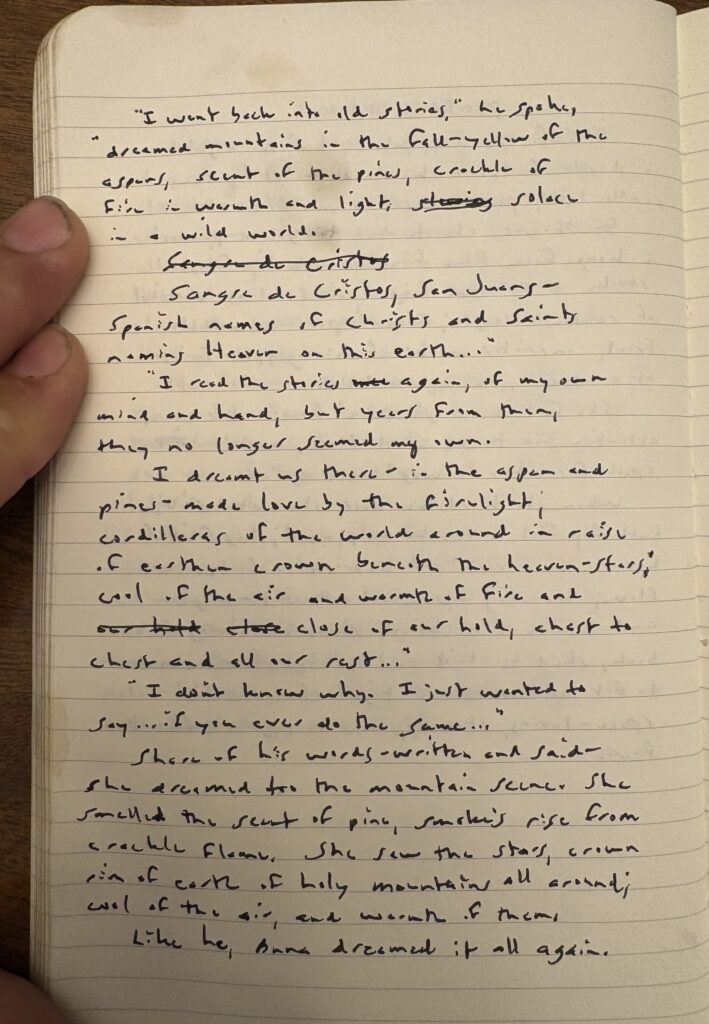 "I went back into old stories," he spoke,
"dreamed mountains in the fall-yellow of the
aspens, scent of the pines, crackle of
fire in warmth and light, solace
in a wild world.
Sangre de Cristos
Sangre de Cristos, San Juans-
Spanish names of Christs and Saints
naming Heaven on this earth..."
"I read the stories again, of my own
mind and hand, but years from them,
they no longer seemed my own.
I dreamt us there- in the aspen and
pines- made love by the firelight;
cordilleras of the world around in raise
of earthen crown beneath the heaven-stars;
cool of the air and warmth of fire and
our hold close close of our hold, chest to
chest and all our rest..."
"I don't know why. I just wanted to
say...if you ever do the same..."
Share of his words-written and said-
she dreamed too the mountain scene. She
smelled the scent of pine, smoke's rise from
crackle flame. She saw the stars, crown
rim of earth of holy mountains all around;
cool of the air, and warmth of them.
Like he, Anna dreamed it all again.